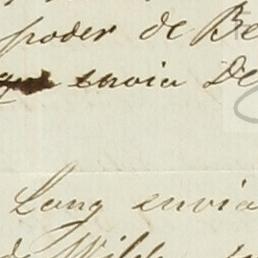 poder de Be
envia De
Lang envia
de Will